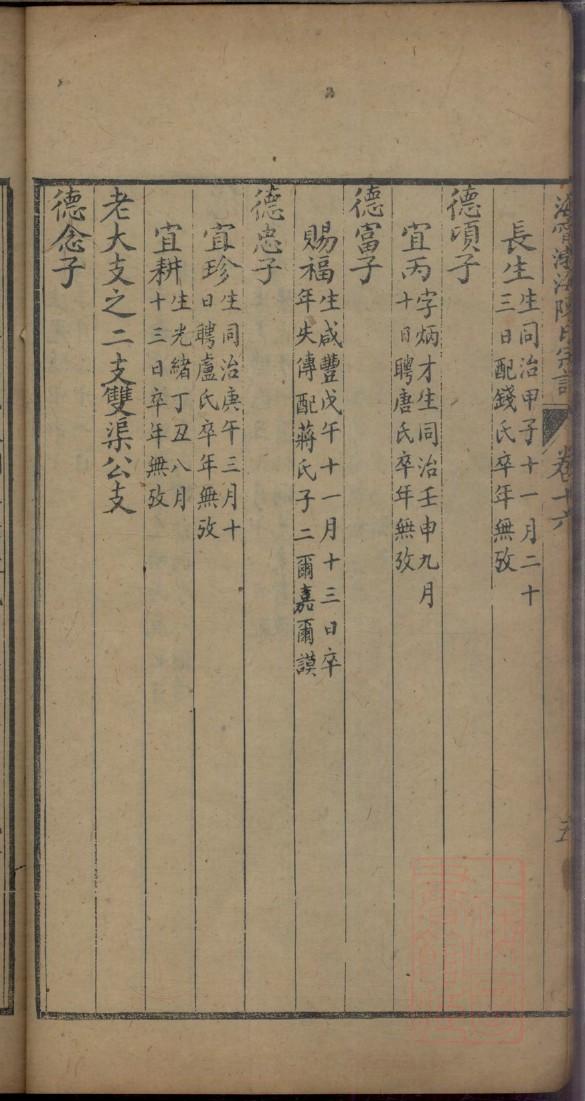 海寧渤海陳氏宗譜 卷十六 五
長生生同治甲子十一月二十
三日配錢氏卒年無攷
德頊子
宜丙字炳才生同治壬申九月
十日聘唐氏卒年無攷
德富子
賜福生咸豐戊午十一月十三日卒
年失傳配蔣氏子二爾嘉爾謨
德忠子
宜珍生同治庚午三月十
日聘盧氏卒年無攷
宜耕生光緒丁丑八月
十三日卒年無攷
老大支之二支雙渠公支
德念子